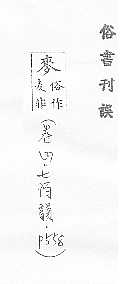 俗書刊誤
麥
俗作
麦非
(卷四·七陌韻·P558)